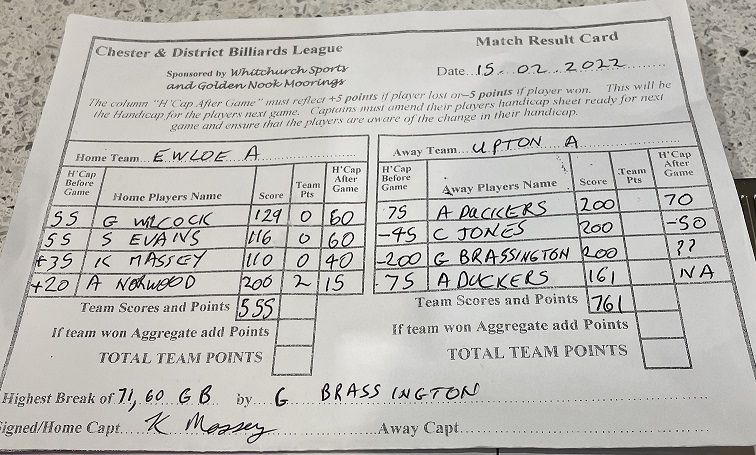 Chester & District Billiards League
Match Result Card
Sponsored by Whitchurch Sports
and Golden Nook Moorings
Date 15.02.2022
The column "H'Cap After Game" must reflect +5 points if player lost or -5 points if player won. This will be
the Handicap for the players next game. Captains must amend their players handicap sheet ready for next
game and ensure that the players are aware of the change in their handicap.
Home Team EWLOE A
Away Team UPTON A
H'Cap Before Game Home Players Name Score Team Pts H'Cap After Game
55 G WILCOCK 129 0 60
55 S EVANS 116 0 60
+35 K MASSEY 110 0 40
+20 A NORWOOD 200 2 15
Team Scores and Points 555
If team won Aggregate add Points
TOTAL TEAM POINTS
H'Cap Before Game Away Players Name Score Team Pts H'Cap After Game
75 A DUCKERS 200 70
-45 C JONES 200 -50
-200 G BRASSINGTON 200 ??
75 A DUCKERS 161 NA
Team Scores and Points 761
If team won Aggregate add Points
TOTAL TEAM POINTS
Highest Break of 71, 60 GB by G BRASSINGTON
Signed/Home Capt K Massey
Away Capt